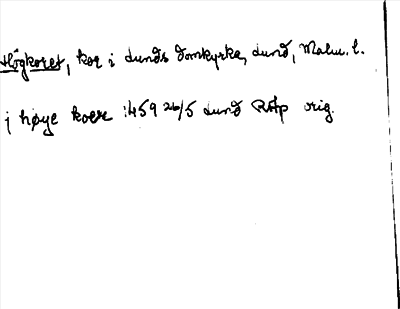 Högkoret, kor i Lunds domkyrka, Lund, Malm. l.
j høye koer 1459 26/5 Lund RAp orig.